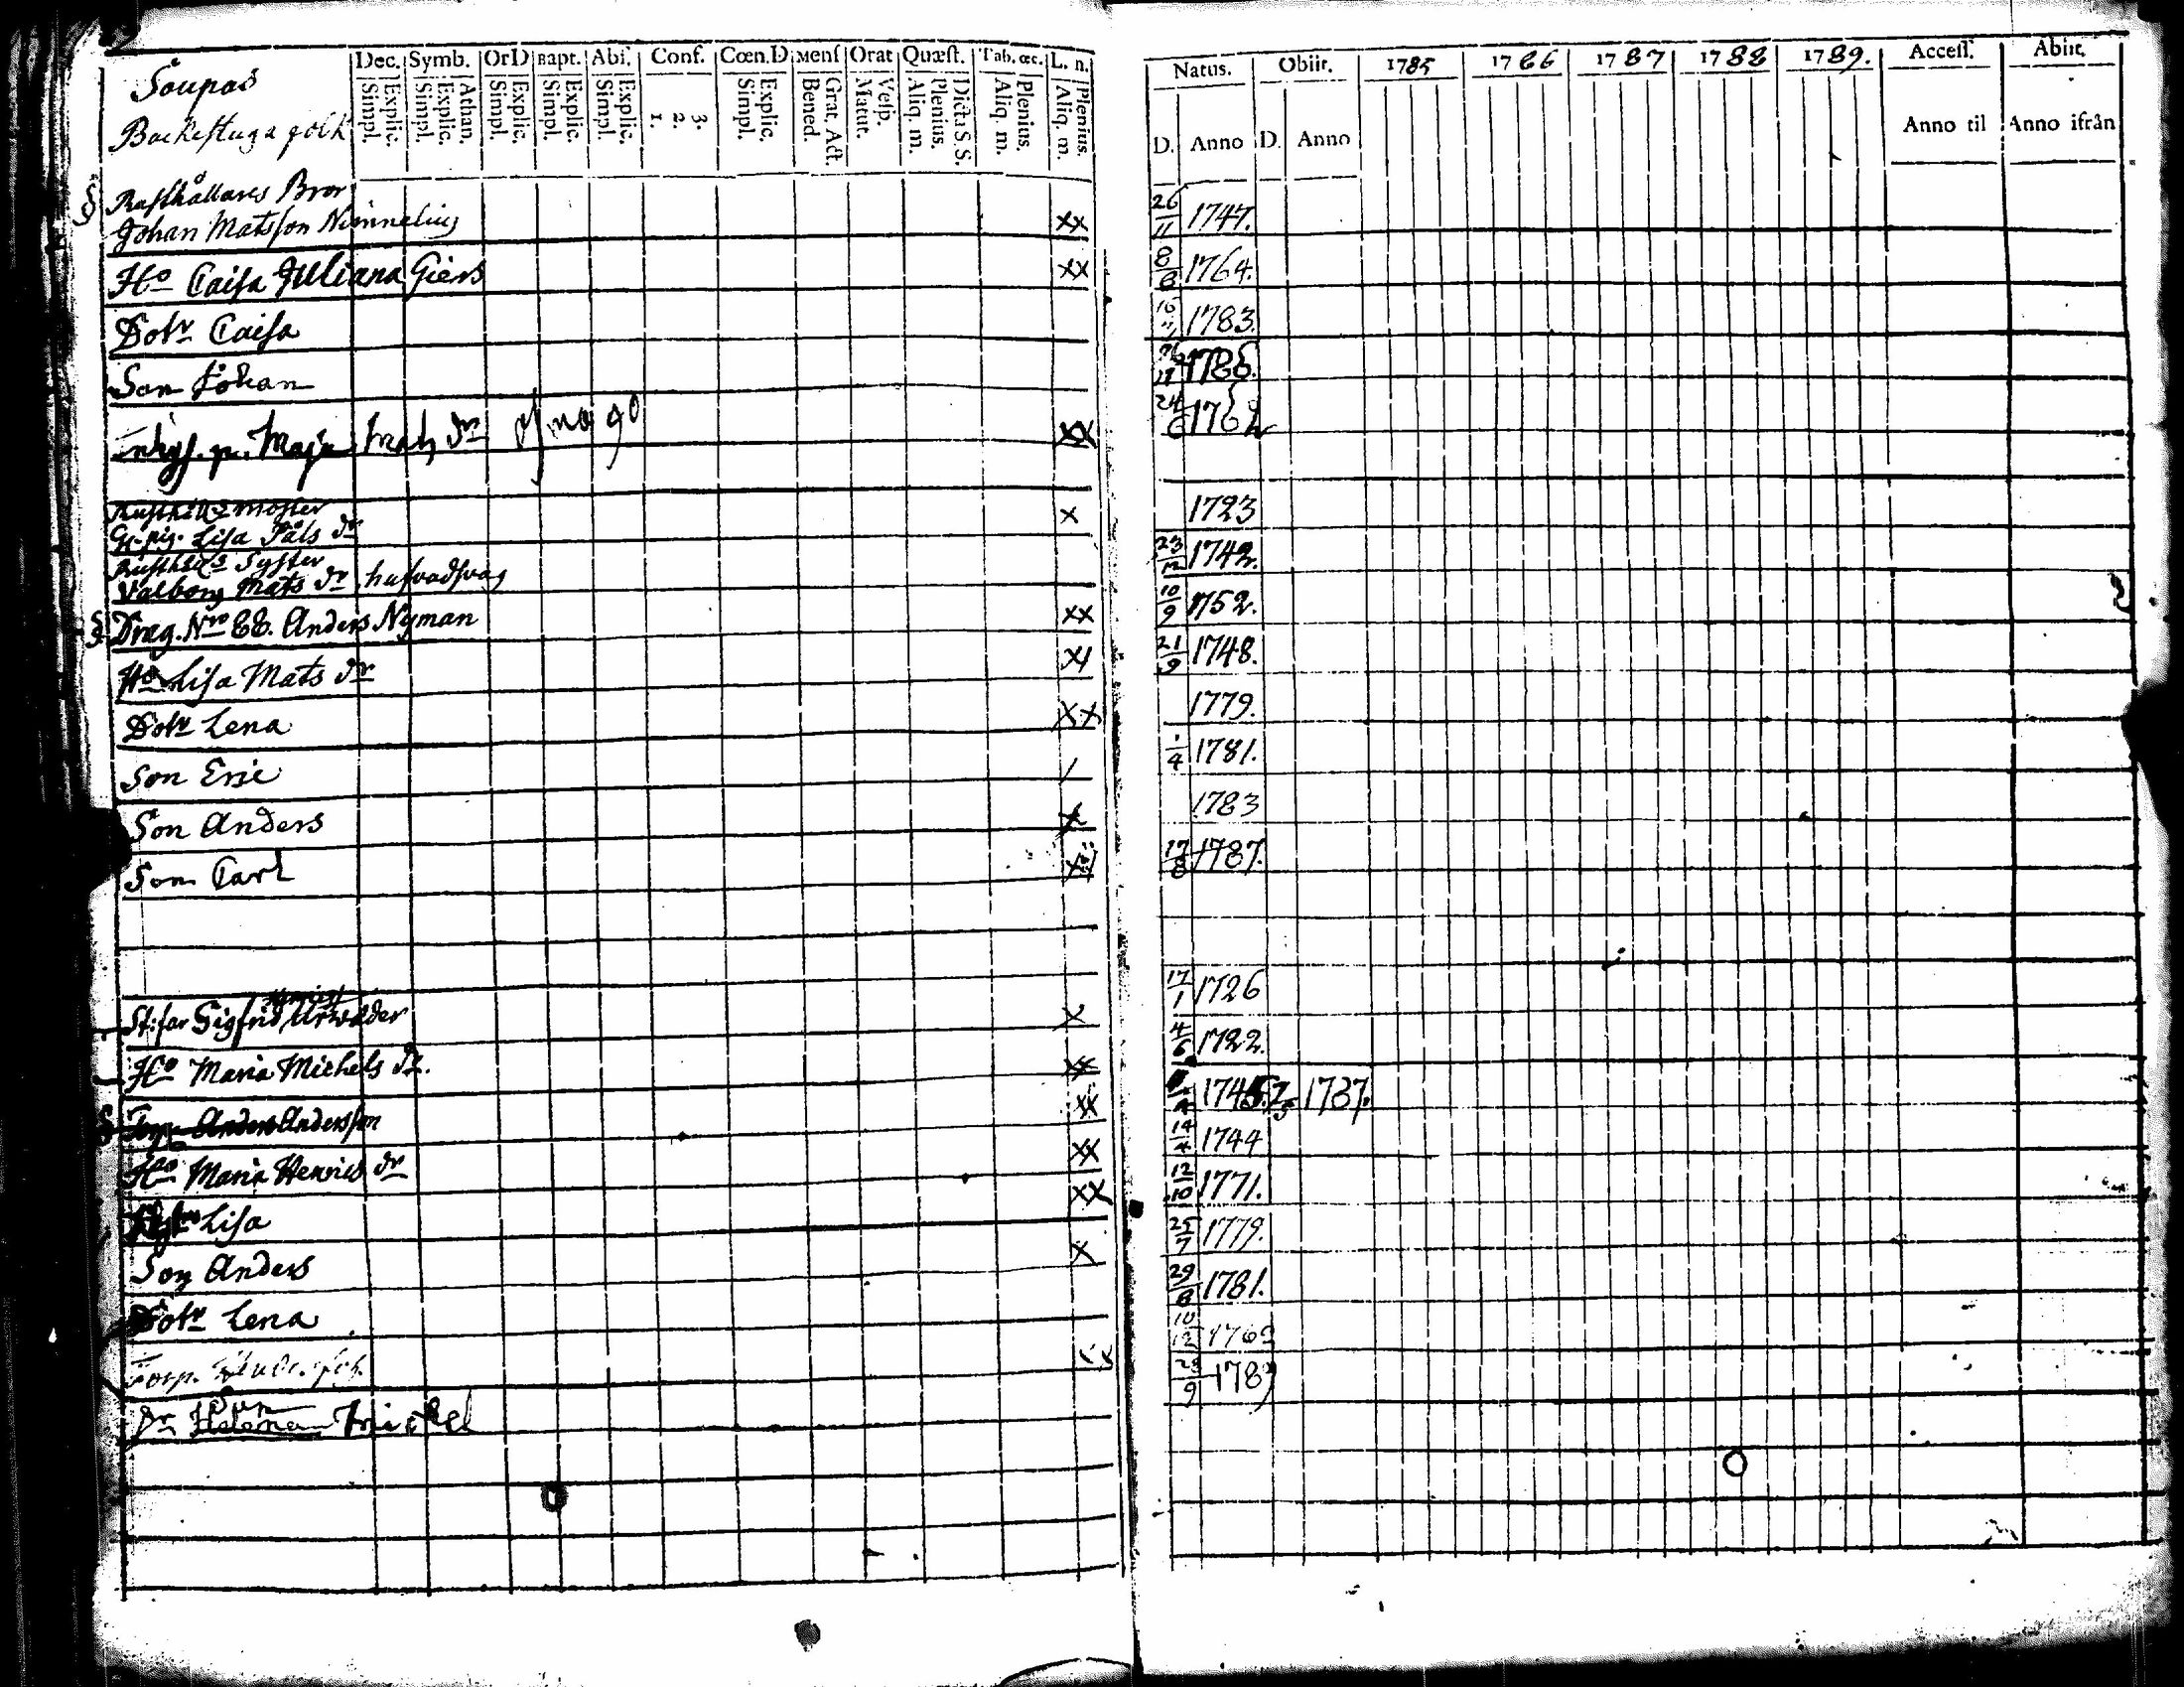 Soupas
Backestuga folk
Dec. Symb. Or D Bapt. Abs. Conf. Cœn. D Mens Orat Quæst. Tab. œc. L. n.
Explic. Simpl. Athan. Explic. Simpl. Explic. Simpl. Explic. Simpl. Explic. Simpl. 3. 2. 1. Explic. Simpl. Grat. Act. Bened. Vesp. Matut. Dicta S. S. Plenius. Aliq. m. Plenius. Aliq. m. Plenius. Aliq. m.
Natus. Obiit. 1785 1786 1787 1788 1789. Access. Abiit.
D. Anno D. Anno Anno til Anno ifrån
§ Rusthållares Bror
Johan Matsson Nimnelius xx 26/11 1747.
Ho Caisa Juliana Giers xx 8/8 1764.
Dotr Caisa 1783.
Son Johan 1786.
Inhys. p. Maja Mats dr xx 24/6 1762
Rusthålls moster
Lisa Påls dr x 1723
Rusthåls Syster
Valborg Mats dr hufvudsvag 23/12 1742.
§ Drag. Nro 88. Anders Nyman xx 10/9 1752.
Ho Lisa Mats dr 21/9 1748.
Dotr Lena xx 1779.
Son Eric / 4 1781.
Son Anders x 1783
Son Carl 17/8 1787.
Sigfrid x 17/1 1726
Ho Maria Michels dr. xx 4/6 1722.
§ Torp. Anders Andersson xx 1787.
Ho Maria Henrics dr xx 14/4 1744
Lisa xx 12/10 1771.
Son Anders x 25/7 1779.
Dotr Lena 29/8 1781.
Torp. 10/12
Son
Dr Helena Michel 9 1789